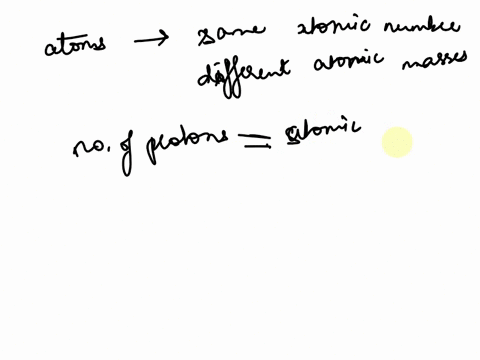 atoms → same atomic number
different atomic masses
no. of protons = atomic